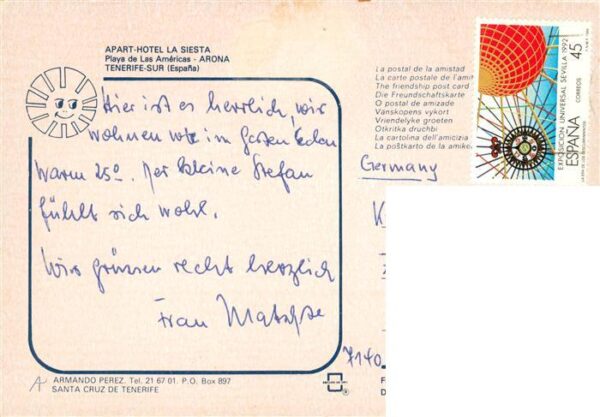 APART-HOTEL LA SIESTA
Playa de Las Américas - ARONA
TENERIFE-SUR (España)
Hier ist es herrlich, wir
wohnen wie im Garten Eden
Warm 25°. Der kleine Stefan
fühlt sich wohl.
Wir grüssen recht herzlich
Frau
ARMANDO PEREZ. Tel. 21 67 01. P.O. Box 897
SANTA CRUZ DE TENERIFE
La postal de la amistad
La carte postale de l'amit
The friendship post card
Die Freundschaftskarte
O postal de amizade
Vanskopens vykort
Vriendelyke groeten
Otkritka druchbi
La cartolina dell'amicizia
La poštkarto de la amike
EXPOSICION UNIVERSAL SEVILLA 1992
ESPAÑA
CORREOS
45
Germany
K
7140